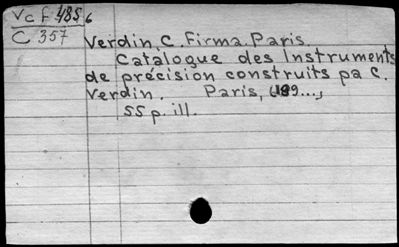 Vcf 485 6
C 357
Verdin, C. Firma. Paris.
Catalogue des Instruments
de précision construits pa C.
Verdin. Paris, (189...,
55 p. ill.